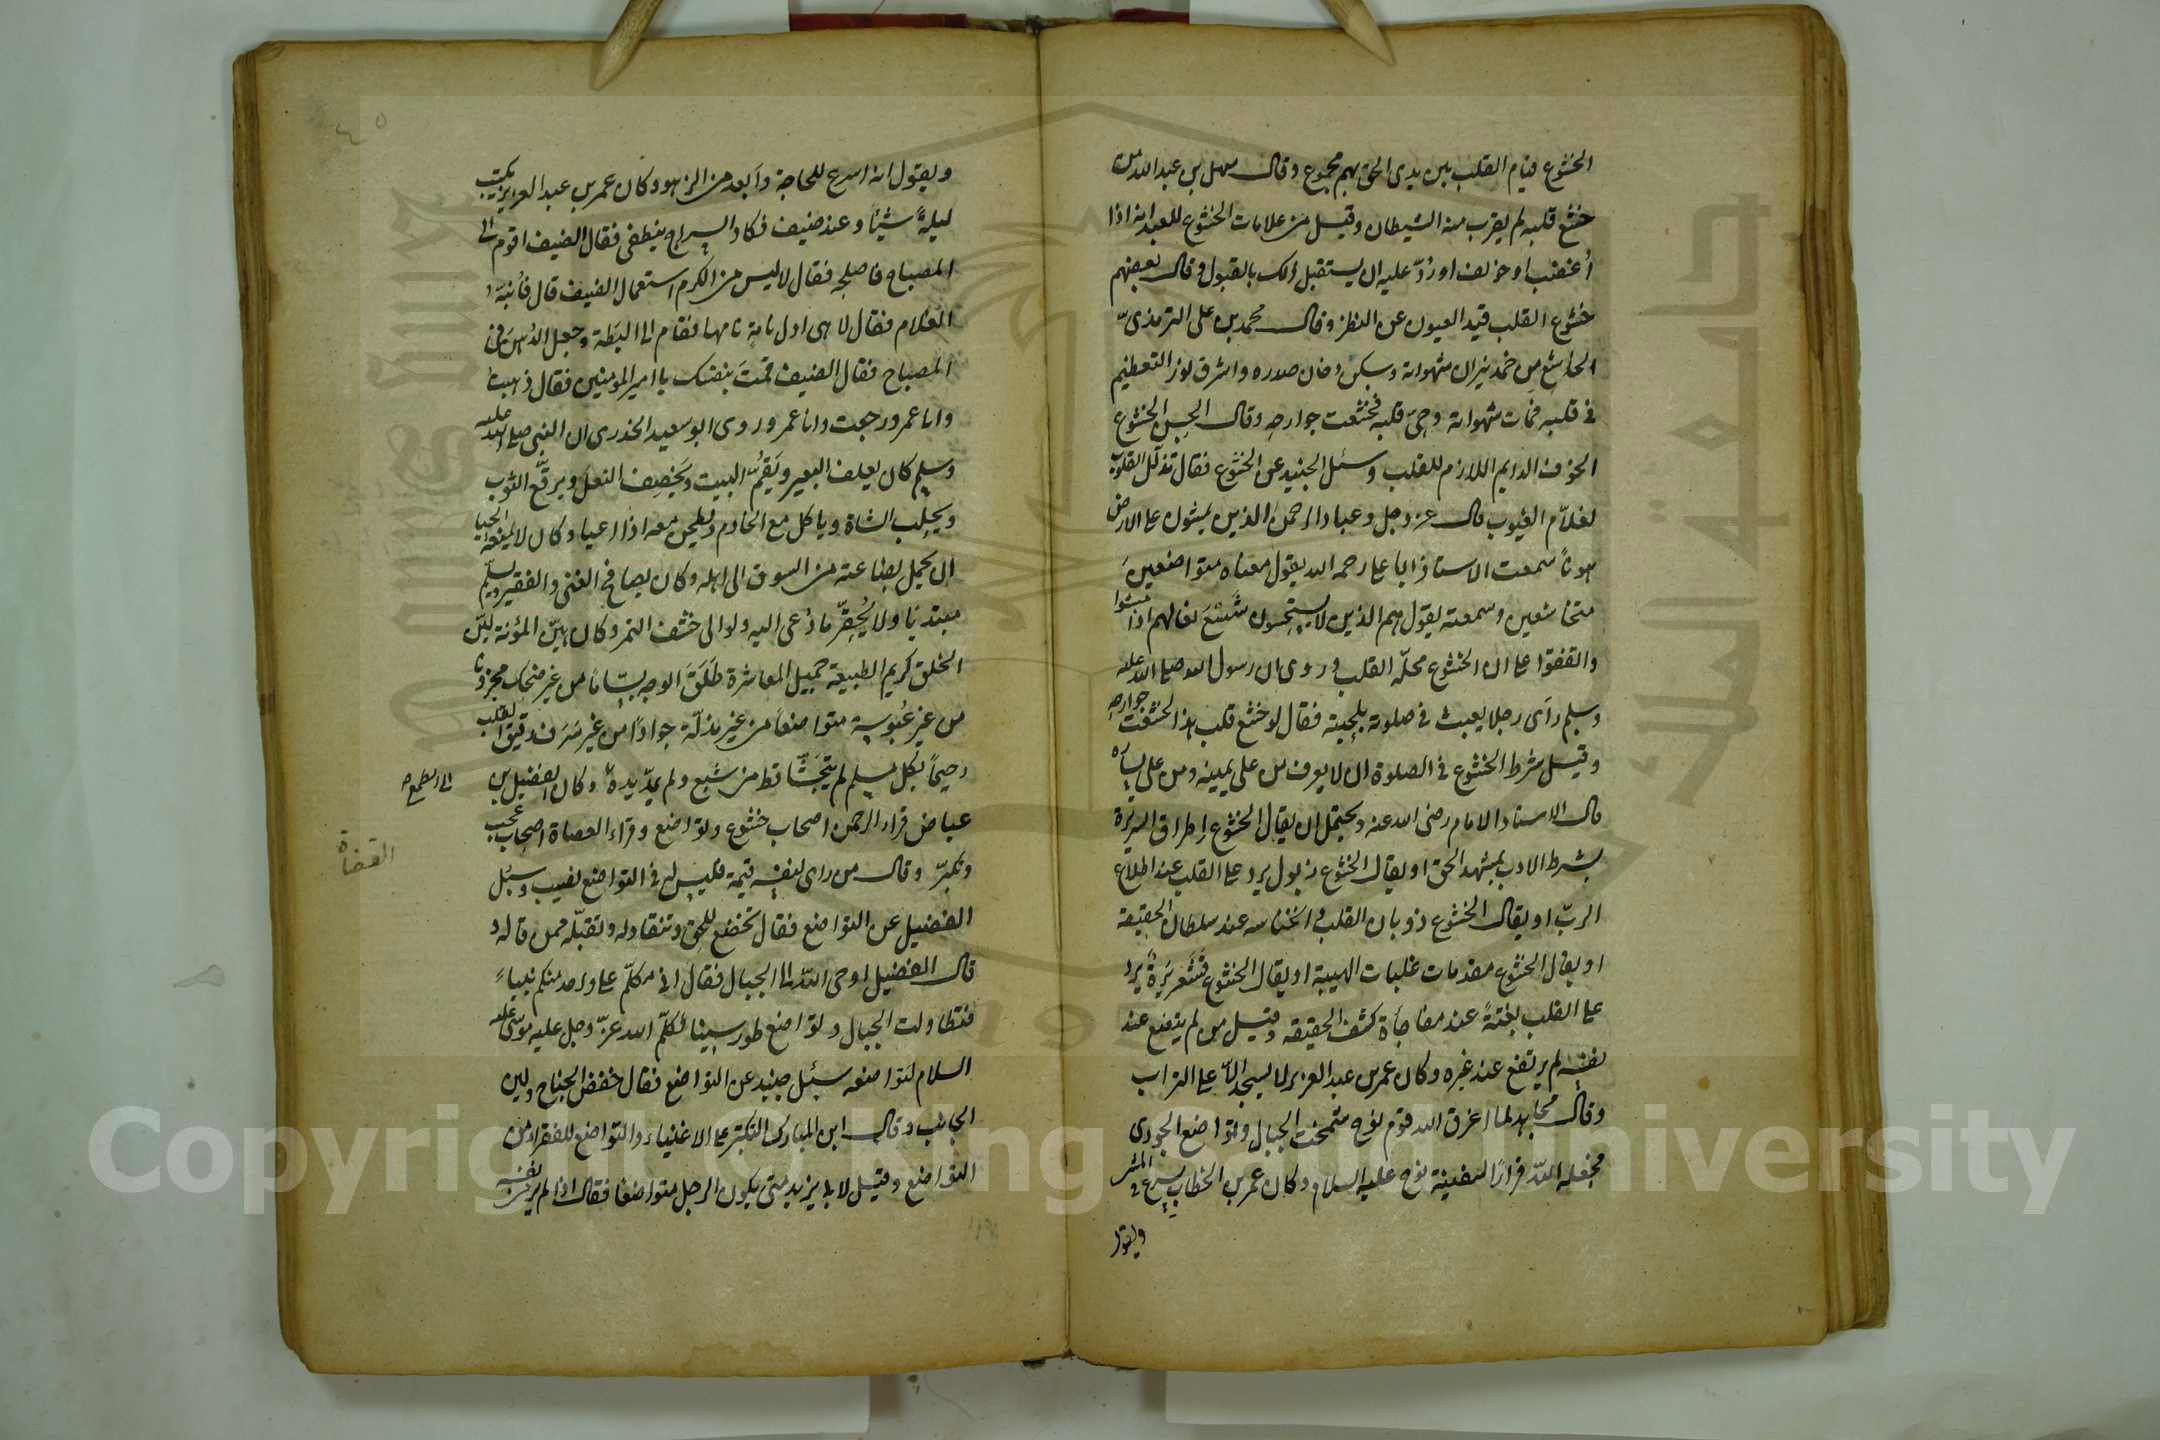 الخشوع قيام القلب بين يدى الحق بهم مجموع وقال سهل بن عبد الله من
خشع قلبه لم يقرب منه الشيطان وقيل من علامات الخشوع للعبد انه اذا
أُغضب او خولف او رُدّ عليه ان يستقبل ذلك بالقبول وقال بعضهم
خشوع القلب قيد العيون عن النظر وقال محمد بن على الترمذىّ
الخاشع من خمد نيران شهواته وسكن دخان صدره واشرق نور التعظيم
فى قلبه فمات شهواته وحىّ قلبه فخشعت جوارحه وقال الحسن الخشوع
الخوف الدايم اللازم للقلب وسئل الجنيد عن الخشوع فقال تذلّل القلوب
لعلّام الغيوب قال عز وجل وعباد الرحمن الذين يمشون على الارض
هونًا سمعت الاستاذ ابا على رحمه الله يقول معناه متواضعين
متخاشعين وسمعته يقول هم الذين لا يستحسنون شسع نعالهم اذا مشوا
واتفقوا على ان الخشوع محلّه القلب وروى ان رسول الله صلى الله عليه
وسلم رأى رجلا يعبث فى صلوته بلحيته فقال لو خشع قلب هذا لخشعت جوارحه
وقيل شرط الخشوع فى الصلوة ان لا يعرف من على يمينه ومن على يساره
قال الاستاد الامام رضى الله عنه ويحتمل ان يقال الخشوع اطراق السريرة
بشرط الادب بمشهد الحق او يقال الخشوع ذبول يرد على القلب عند اطلاع
الربّ او يقال الخشوع ذوبان القلب وانخناسه عند سلطان الحقيقة
او يقال الخشوع مقدمات غلبات الهيبة او يقال الخشوع قشعريرة يرد
على القلب بغتةً عند مفاجأة كشف الحقيقه وقيل من لم يتضع عند
نفسه لم يرتفع عند غيره وكان عمر بن عبد العزيز لا يسجد الّا على التراب
وقال مجاهد لما اغرق الله قوم نوح شمخت الجبال وتواضع الجودى
فجعله الله قرارًا لسفينة نوح عليه السلام وكان عمر بن الخطاب يسرع فى المشى
ويقول
٤٥
ويقول انه اسرع للحاجة وأبعد من الزهو وكان عمر بن عبد العزيز يكتب
ليلةً شيئا وعند ضيف فكاد السراج ينطفى فقال الضيف اقوم الى
المصباح فاصلحه فقال لا ليس من الكرم استعمال الضيف قال فأنبه
الغلام فقال لا هى اول نامة نامها فقام الى البطة وجعل الدُهن فى
المصباح فقال الضيف قمت بنفسك يا امير المومنين فقال ذهبت
وانا عمر ورجعت وانا عمر وروى ابو سعيد الخدرى ان النبى صلى الله عليه
وسلم كان يعلف البعير ويقمُّ البيت ويخصف النعل ويرقّع الثوب
ويحلب الشاة وياكل مع الخادم ويطحن معه اذا اعيا وكان لا يمنعه الحيا
ان يحمل بضاعته من السوق الى اهله وكان يصافح الغنى والفقير ويسلّم
مبتديا ولا يُحقّر ما دُعى اليه ولو الى حشف التمر وكان هيّن المؤنة ليّن
الخلق كريم الطبيعة جميل المعاشرة طَلَق الوجه بسّاما من غير ضحك محزونا
من غير عُبوسة متواضعا من غير مذلّة جوادًا من غير سَرَف رقيق القلب
رحيمًا بكل مسلم لم يتجشّأ قط من شبع ولم يمدّ يده وكان الفضيل بن
الى طمع صح
عياض قراء الرحمن اصحاب خشوع وتواضع وقراء العصاة اصحاب عجب
القضاة
وتكبّر وقال من راى لنفسه قيمة فليس له فى التواضع نصيب وسئل
الفضيل عن التواضع فقال تخضع للحق وتنقاد له وتقبّله ممن قاله و
قال الفضيل اوحى الله الى الجبال فقال انى مكلّم على واحد منكم نبيًّا
فتطاولت الجبال وتواضع طور سينا فكلّم الله عزّ وجل عليه موسى عليه
السلام لتواضعه سئل جنيد عن التواضع فقال خفض الجناح ولين
الجانب وقال ابن المبارك التكبّر على الاغنياء والتواضع للفقراء من
التواضع وقيل لابى يزيد متى يكون الرجل متواضعًا فقال اذا لم ير لنفسه
Copyright © King Saud University
جامعة الملك سعود
1957